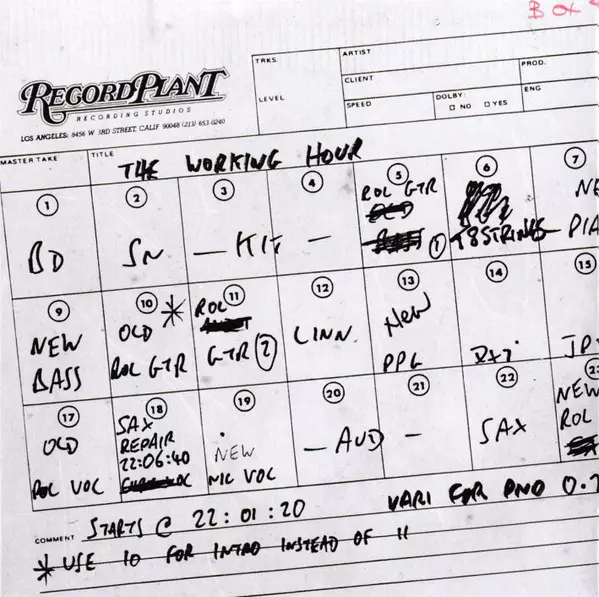 B of
RECORD PLANT
RECORDING STUDIOS
LOS ANGELES: 8456 W. 3RD STREET, CALIF. 90048 (213) 653-0240
TRKS.
ARTIST
PROD.
CLIENT
LEVEL
SPEED
DOLBY:
ENG
□ NO □ YES
MASTER TAKE
TITLE
THE WORKING HOUR
1
BD
2
SN
3
— KIT
4
—
5
ROL GTR
1
6
T8 STRINGS
7
NE
PIA
9
NEW
BASS
10
OLD *
ROL GTR
11
ROL
GTR 2
12
LINN.
13
NEW
PPG
14
15
JP
17
OLD
ROL VOC
18
SAX
REPAIR
22:06:40
19
NEW
NIC VOC
20
— AUD
21
—
22
SAX
23
NEW
ROL
COMMENT
STARTS @ 22:01:20
VARI FOR PNO 0.
* USE 10 FOR INTRO INSTEAD OF 11